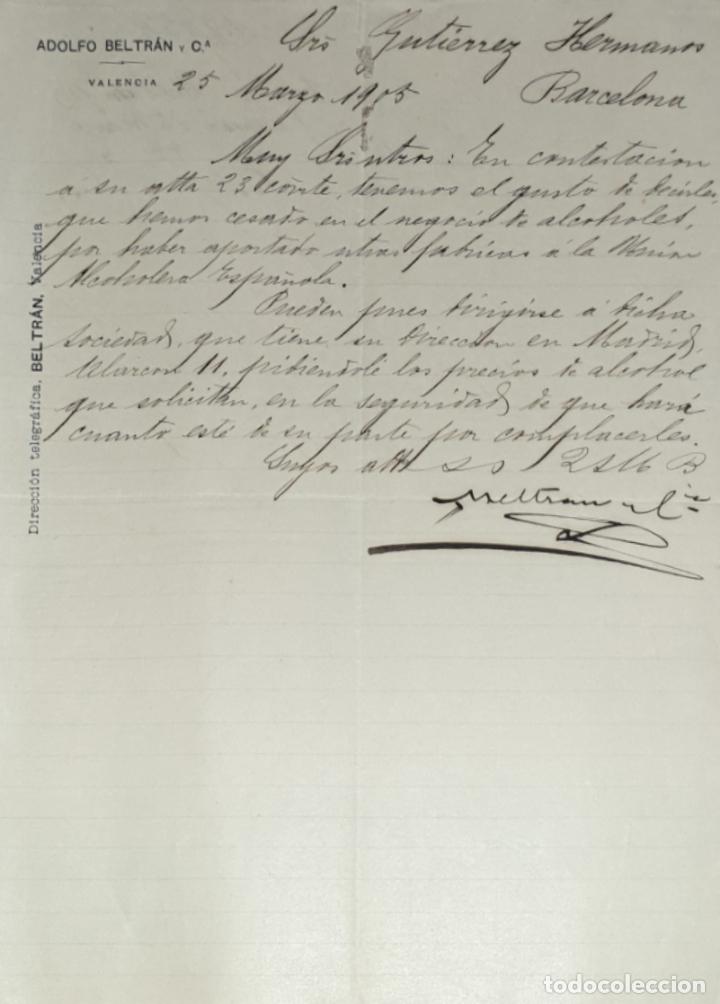 ADOLFO BELTRÁN Y C.A
VALENCIA 25 Marzo 1905
Srs Gutiérrez Hermanos
Barcelona
Muy Srs ntros: En contestacion
a su atta 23 cörrte, tenemos el gusto de decirles,
que hemos cesado en el negocio de alcoholes,
por haber aportado ntras fabricas á la Union
Alcoholera Española.
Pueden pues dirigirse á dicha
sociedad, que tiene su direccion en Madrid,
Alarcon 11, pidiendole los precios de alcohol
que solicitan, en la seguridad de que hará
cuanto esté de su parte por complacerles.
Suyos atts s s 2 S M B
Beltran y Cia
Dirección telegráfica, BELTRÁN, Valencia
todocoleccion